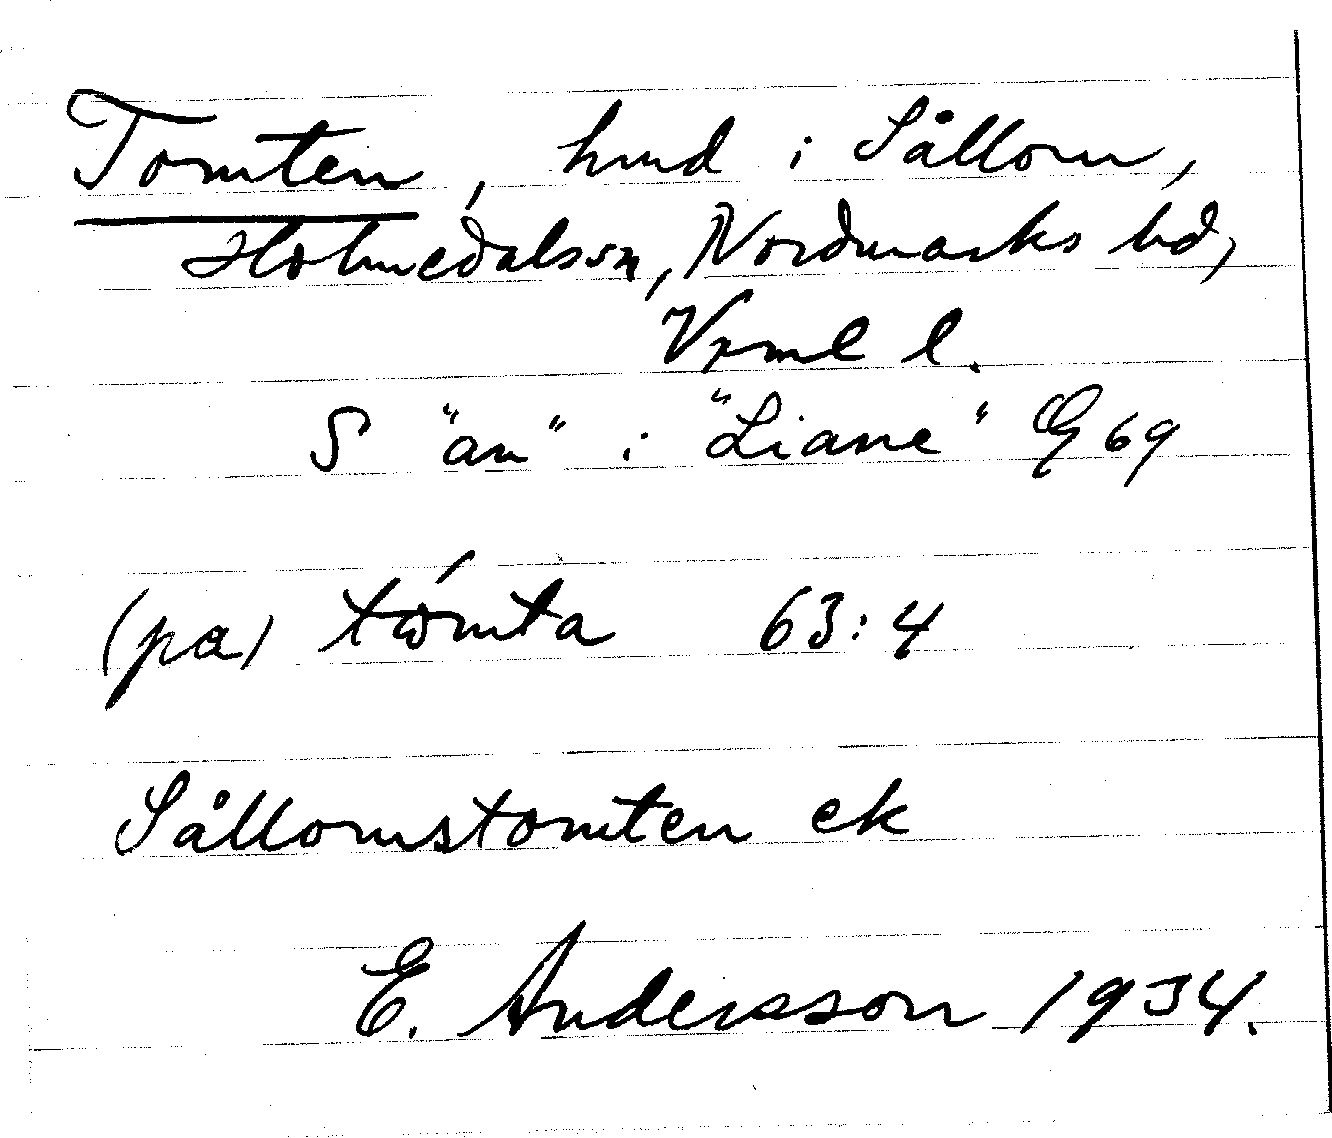 Tomten, hmd i Sållom,
Holmedals sn, Nordmarks hd,
Vrml l.
S "an" i "Liane" G 69
(pa) tómta 63:4
Sållomstomten ek
E. Andersson 1934.